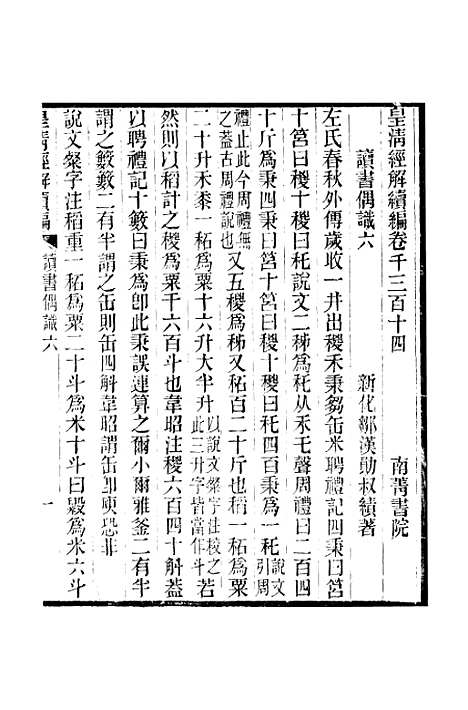 皇清經解續編卷千三百十四
南菁書院
讀書偶識六
新化鄒漢勛叔績著
左氏春秋外傳歲收一井出稯禾秉芻缶米聘禮記四秉曰筥
十筥曰稯十稯曰秅說文二秭為秅从禾乇聲周禮曰二百四
十斤為秉四秉曰筥十筥曰稯十稯曰秅四百秉為一秅說文引周
禮止此今周禮無之蓋古周禮說也又五稯為秭又秙百二十斤也秙為粟
二十升禾黍一秙為粟十六升大半升以說文粲字注校之此三升字皆當作斗若
然則以稻計之稯為粟千六百斗也韋昭注稯六百四十斛蓋
以聘禮記十籔曰秉為卽此秉誤連算之爾小爾雅釜二有半
謂之籔籔二有半謂之缶則缶四斛韋昭謂缶卽庾恐非
說文粲字注稻重一秙為粟二十斗為米十斗曰毇為米六斗
皇清經解續編
讀書偶識六
一